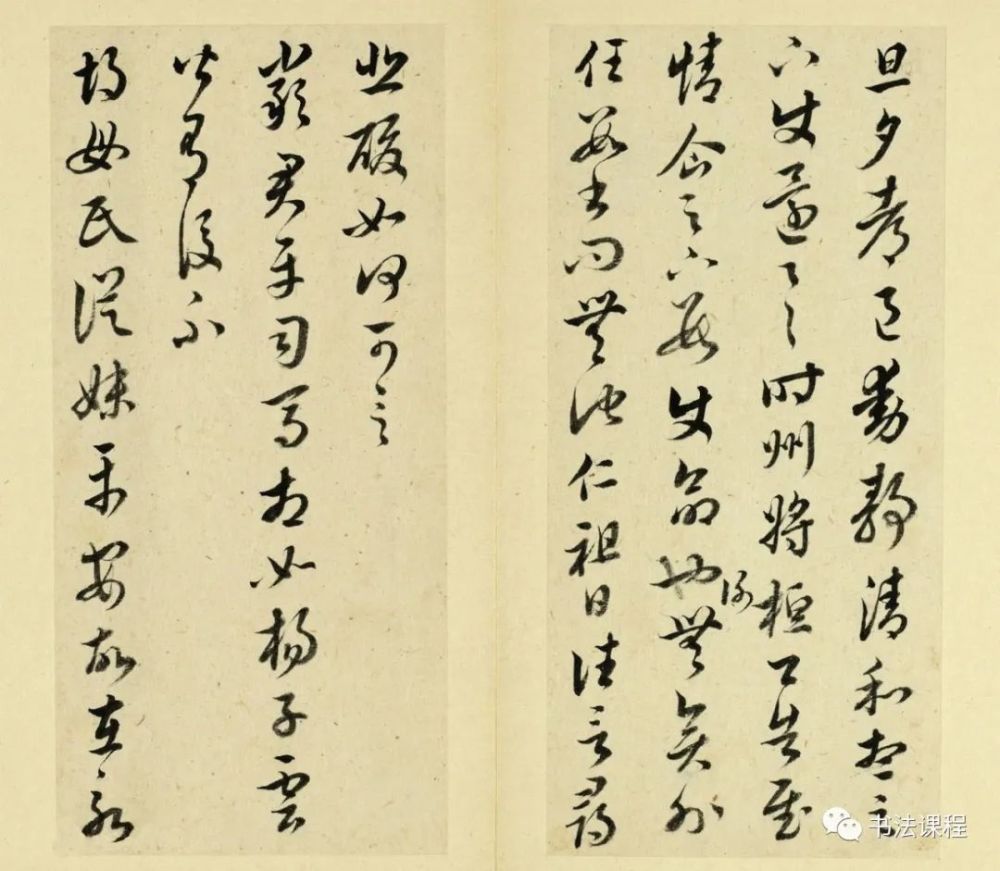 旦夕都邑動靜清和想足
下使還一一時州將桓公告慰
情企足下數使命也謝無奕外
任數書問無他仁祖日往言尋
悲酸如何可言
嚴君平司馬相如楊子雲
皆有後不
胡母氏從妹平安故在永
书法课程